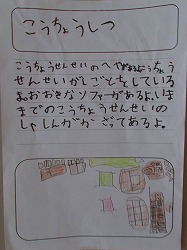 こうちょうしつ
こうちょうせんせいのへやだよ。こうちょう
せんせいがしごとをしている
よ。おおきなソファーがあるよ。いま
までのこうちょうせんせいの
しゃしんがかざってあるよ。